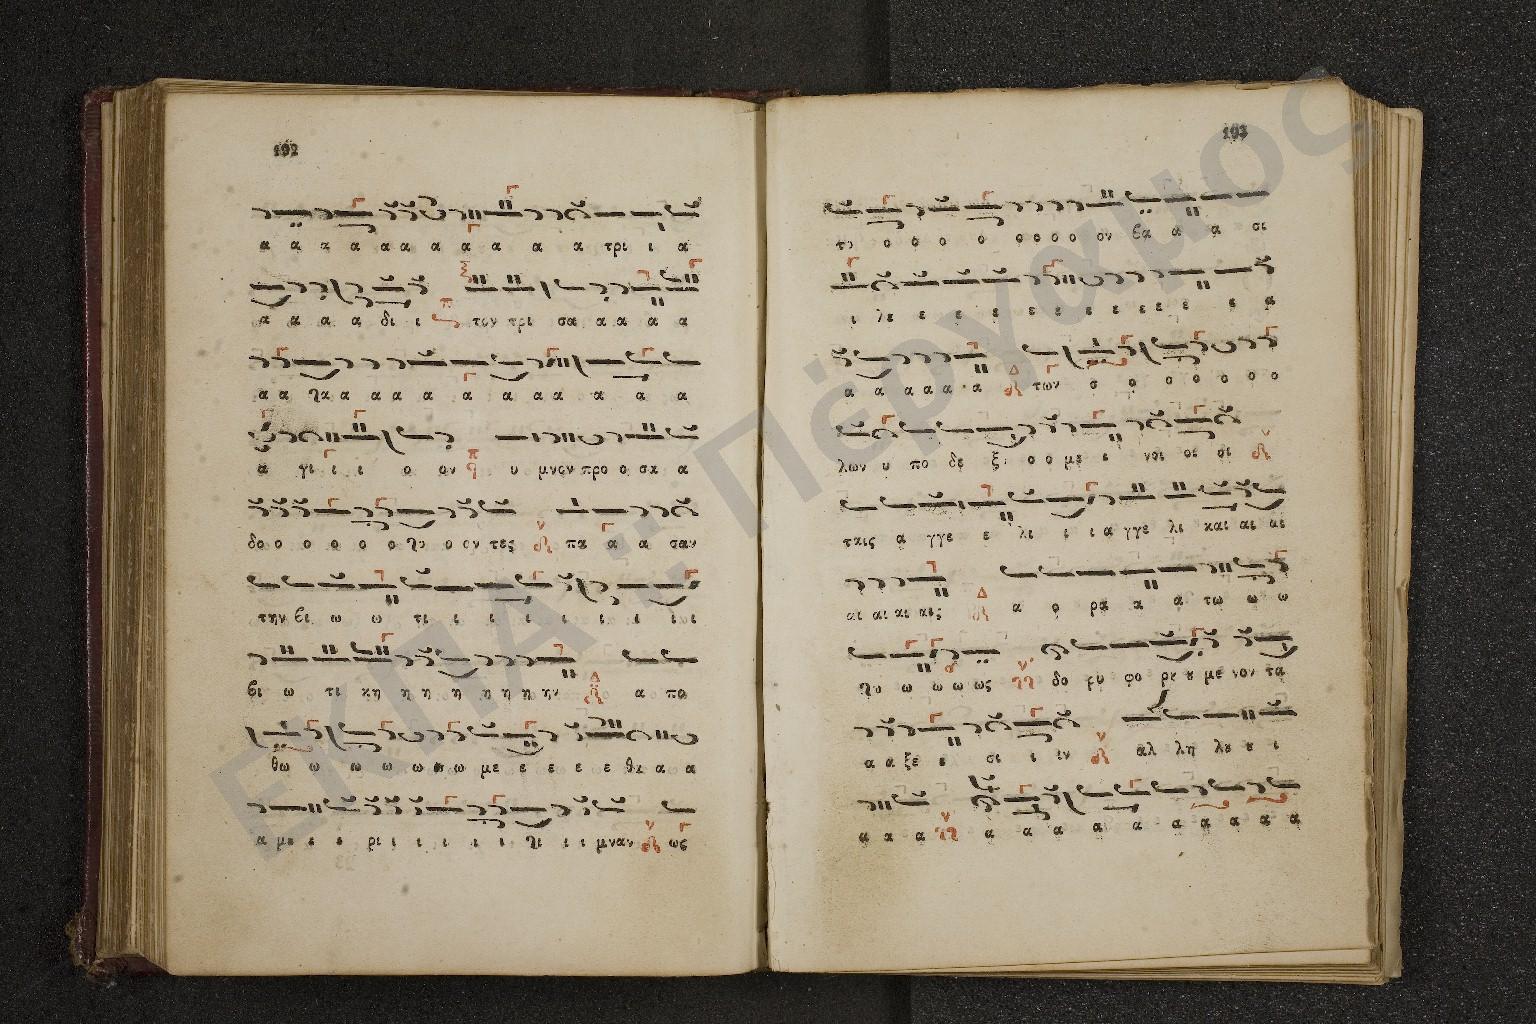 192
α α α α α α α α α α α α τρι ι α
α α α α δι ι τον τρι σα α α α α
α α γα α α α α α α α α α α α
α γι ι ι ο ον υ μνον προ ο σα α
δο ο ο ο ο ο λο ο ον τες πα α α σαν
την βι ω ω τι ι ι ι ι ι ι ι ι
βι ω τι κη η η η η η η ην α πο
θω ω ω ω ω ω ω με ε ε ε ε θα α α
α με ε ε ρι ι ι ι ι ι ι ι ι μναν ως
193
το ο ο ο ο ο ο ο ο ον βα α α α σι
ι λε ε ε ε ε ε ε ε ε ε ε ε α
α α α α α α των ο ο ο ο ο ο ο
λων υ πο δε ξ ο ο με ε νοι οι οι
ταις α γγε ε λι ι ι α γγε λι και αι αι
αι αι αι αις α ο ρα α α τω ω ω
ω ω ω ως δο ρυ φο ρου ου με νον τα
α α ξε ε σι ι ιν αλ λη λου ου ι
α α α α α α α α α α α α α
ΕΚΠΑ :: Πέργαμος